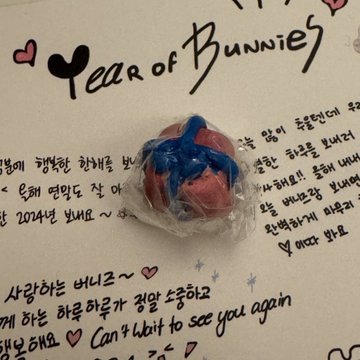 Year of Bunnies
덕분에 행복한 한해를 보
올해 연말도 잘 마
한 2024년 보내요
많이 추울텐데
한 하루를 보내러
해요!! 올해 내내
늘 버니랑 보내면
완벽하게 마무리
♡이따 봐요
사랑하는 버니즈~♡
께 하는 하루하루가 정말 소중하고
행복해요 ♡ Can't Wait to see you again